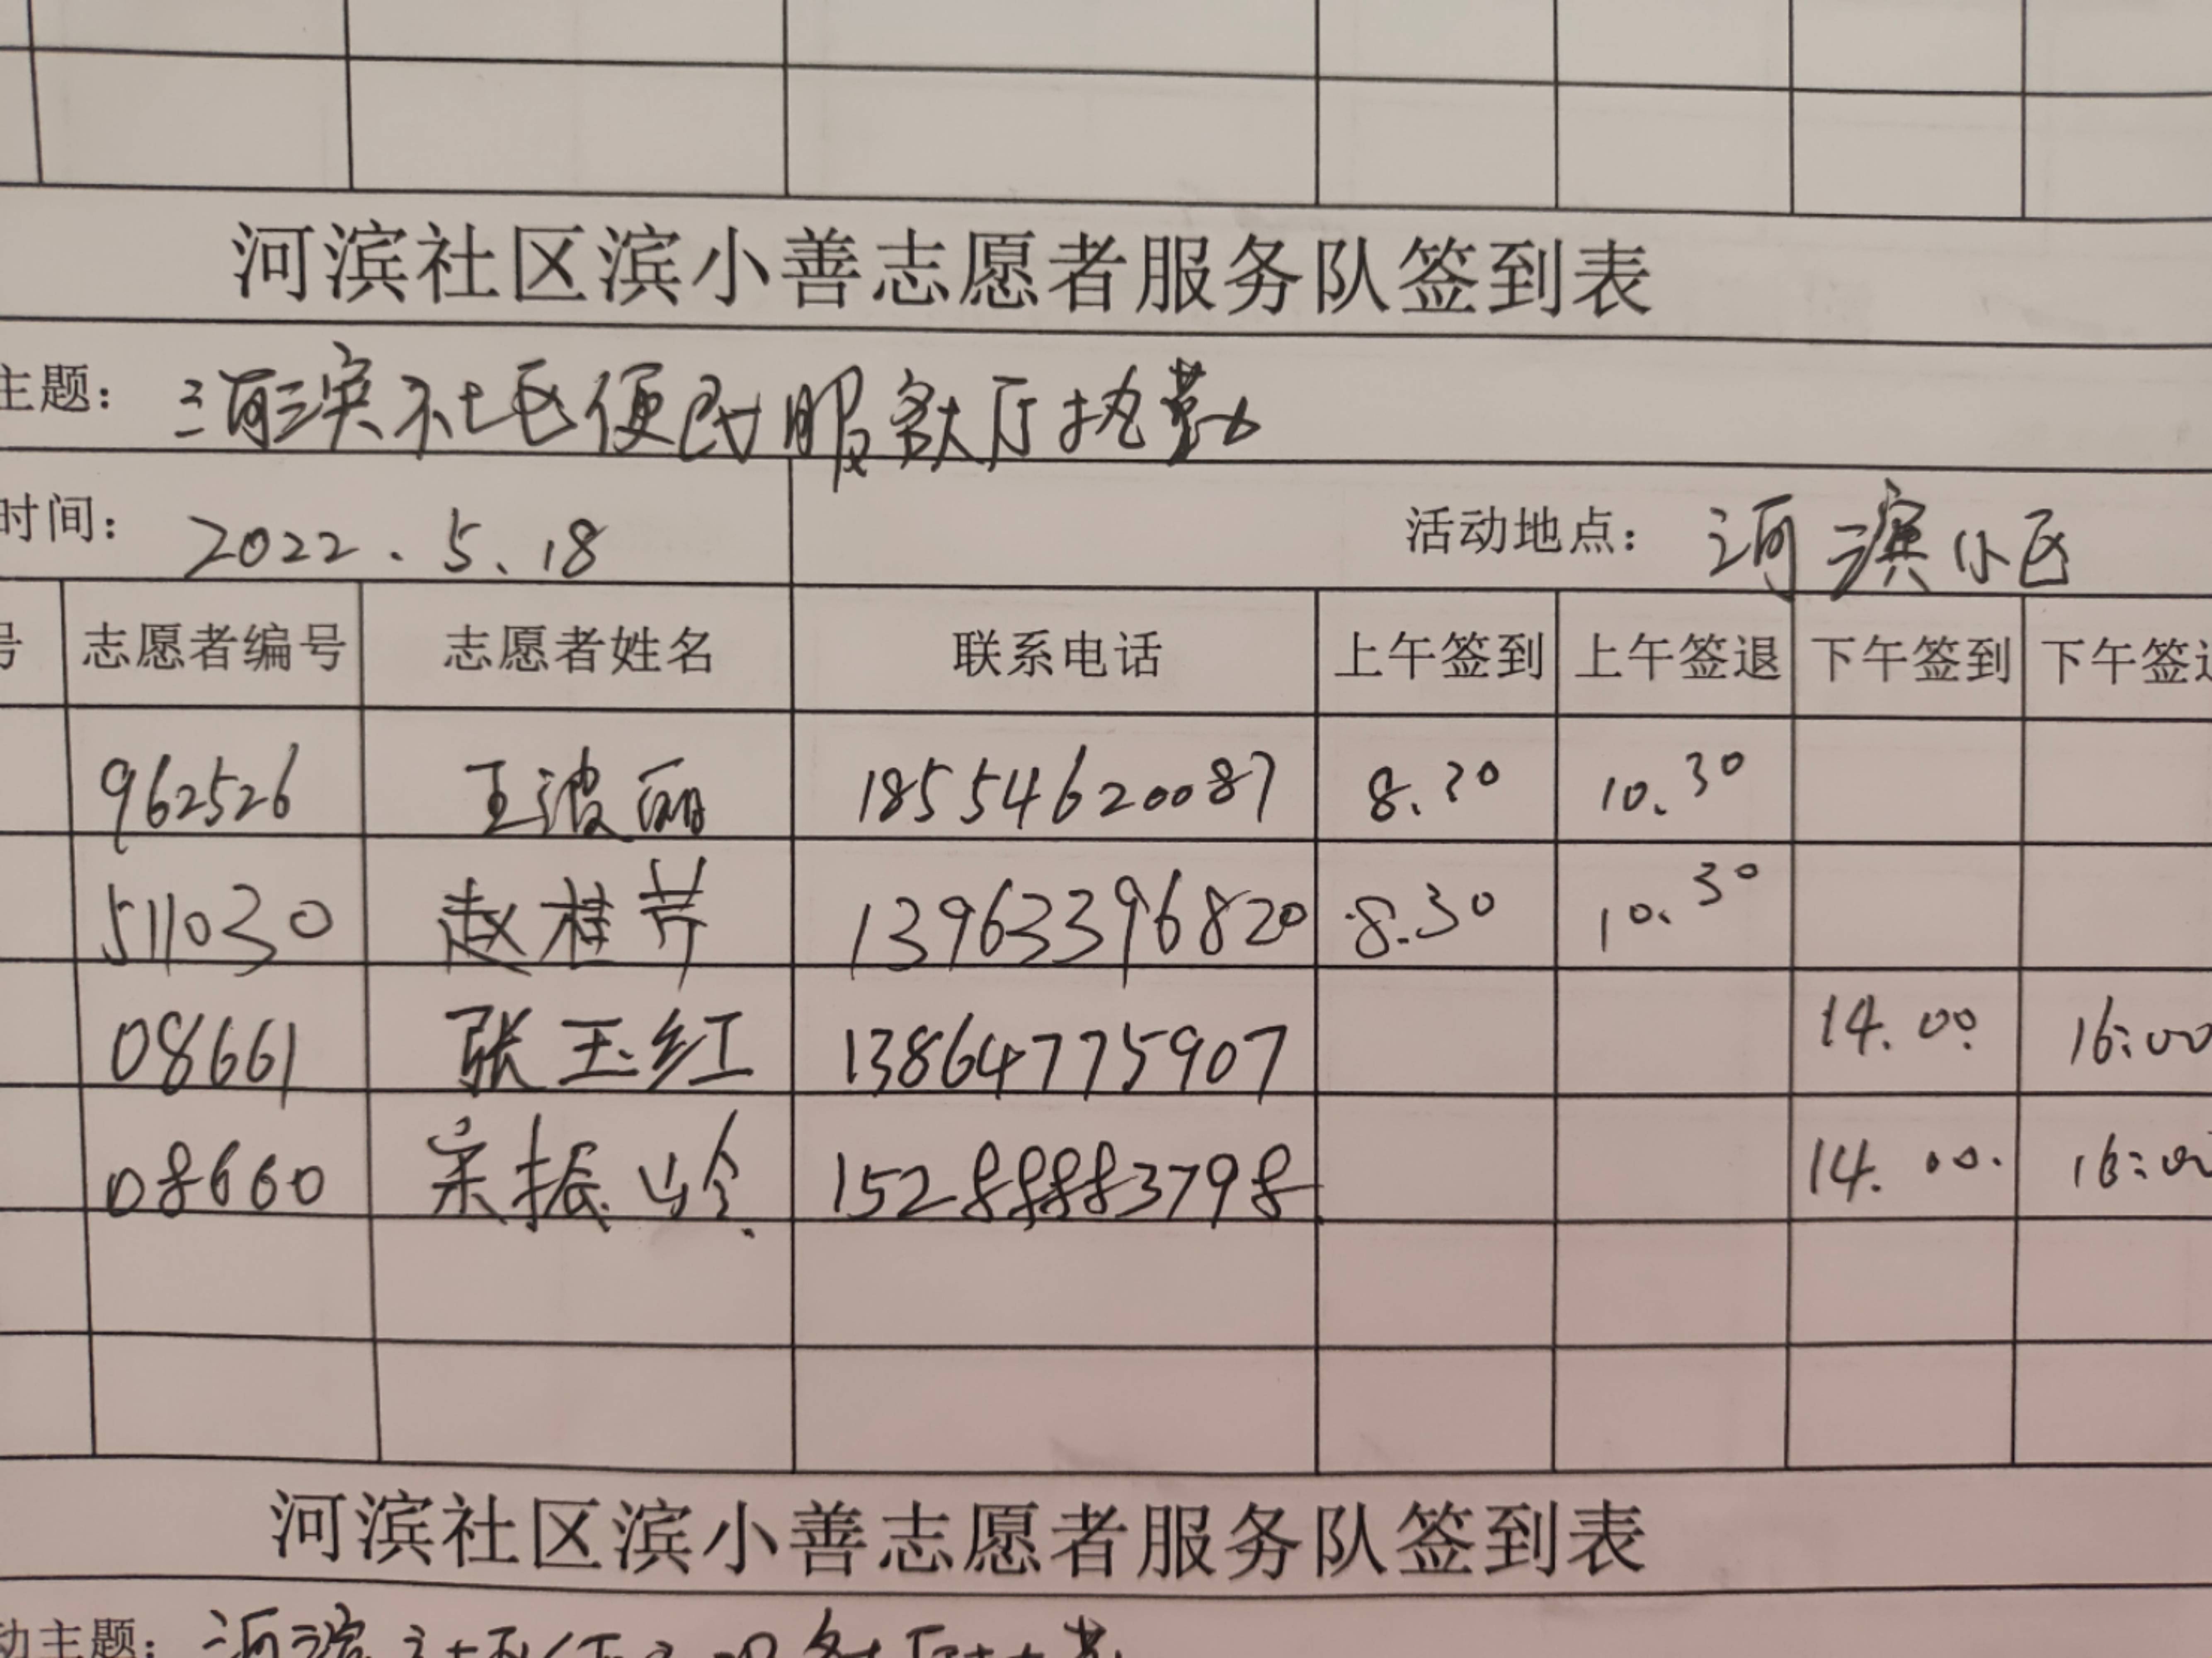 河滨社区滨小善志愿者服务队签到表
主题： 河滨社区便民服务大厅执勤
时间： 2022.5.18 活动地点： 河滨小区
号 志愿者编号 志愿者姓名 联系电话 上午签到 上午签退 下午签到 下午签退
962526 王波丽 18554620087 8.30 10.30
511030 赵桂芹 13963396820 8.30 10.30
08661 张玉红 13864775907 14.00 16:00
08660 宗振岭 15288883798 14.00. 16:00
河滨社区滨小善志愿者服务队签到表
动主题： 河滨社区便民服务大厅执勤